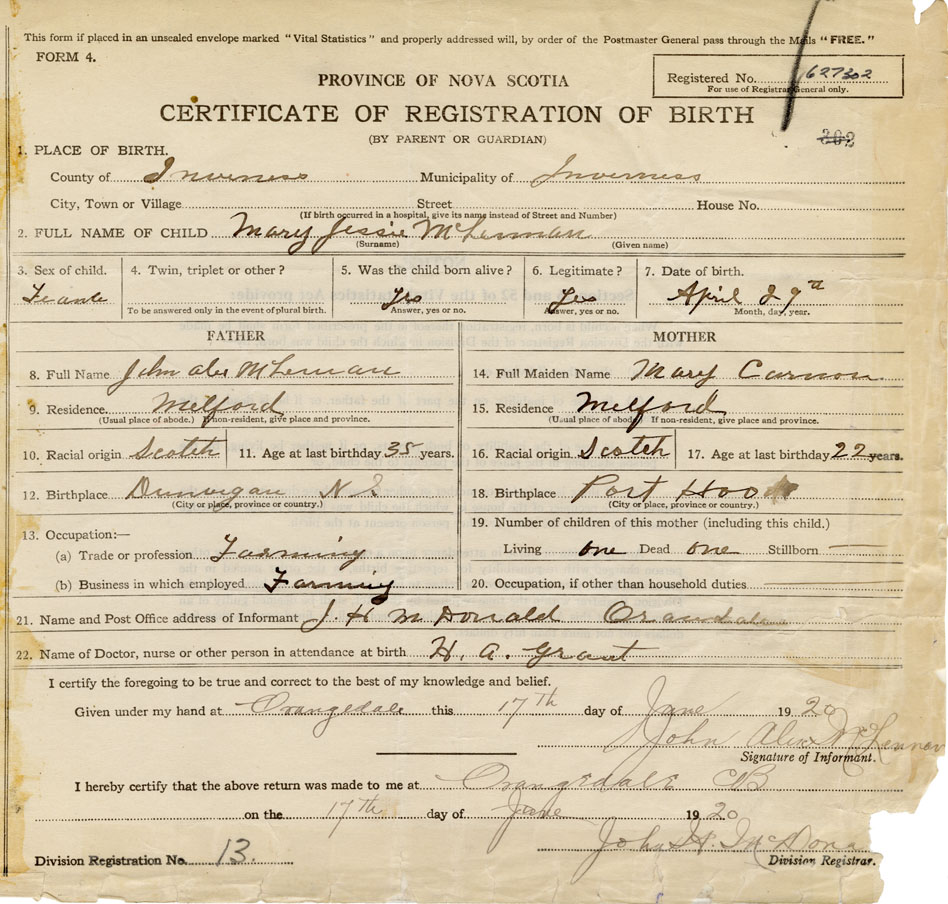 This form if placed in an unsealed envelope marked "Vital Statistics" and properly addressed will, by order of the Postmaster General pass through the Mails "FREE."
FORM 4.
PROVINCE OF NOVA SCOTIA
Registered No. 627302
For use of Registrar General only.
CERTIFICATE OF REGISTRATION OF BIRTH
(BY PARENT OR GUARDIAN)
302
1. PLACE OF BIRTH.
County of Inverness Municipality of Inverness
City, Town or Village Street House No.
(If birth occurred in a hospital, give its name instead of Street and Number)
2. FULL NAME OF CHILD Mary Jessie McLennan
(Surname) (Given name)
3. Sex of child. 4. Twin, triplet or other? 5. Was the child born alive? 6. Legitimate? 7. Date of birth.
Yes Yes April 29th
To be answered only in the event of plural birth. Answer, yes or no. Answer, yes or no. Month, day, year.
FATHER MOTHER
8. Full Name John Alex McLennan 14. Full Maiden Name Mary
9. Residence Melford 15. Residence Melford
(Usual place of abode.) If non-resident, give place and province. (Usual place of abode) If non-resident, give place and province.
10. Racial origin Scotch 11. Age at last birthday 35 years. 16. Racial origin Scotch 17. Age at last birthday 22 years.
12. Birthplace Dunvegan N S 18. Birthplace Port Hood
(City or place, province or country.) (City or place, province or country.)
13. Occupation:— 19. Number of children of this mother (including this child.)
(a) Trade or profession Farming Living one Dead one Stillborn —
(b) Business in which employed Farming 20. Occupation, if other than household duties
21. Name and Post Office address of Informant J. H McDonald
22. Name of Doctor, nurse or other person in attendance at birth H. A. Grant
I certify the foregoing to be true and correct to the best of my knowledge and belief.
Given under my hand at Orangedale this 17th day of June 1920
John Alex McLennan
Signature of Informant.
I hereby certify that the above return was made to me at Orangedale CB
on the 17th day of June 1920
John H. McDona
Division Registration No. 13. Division Registrar.